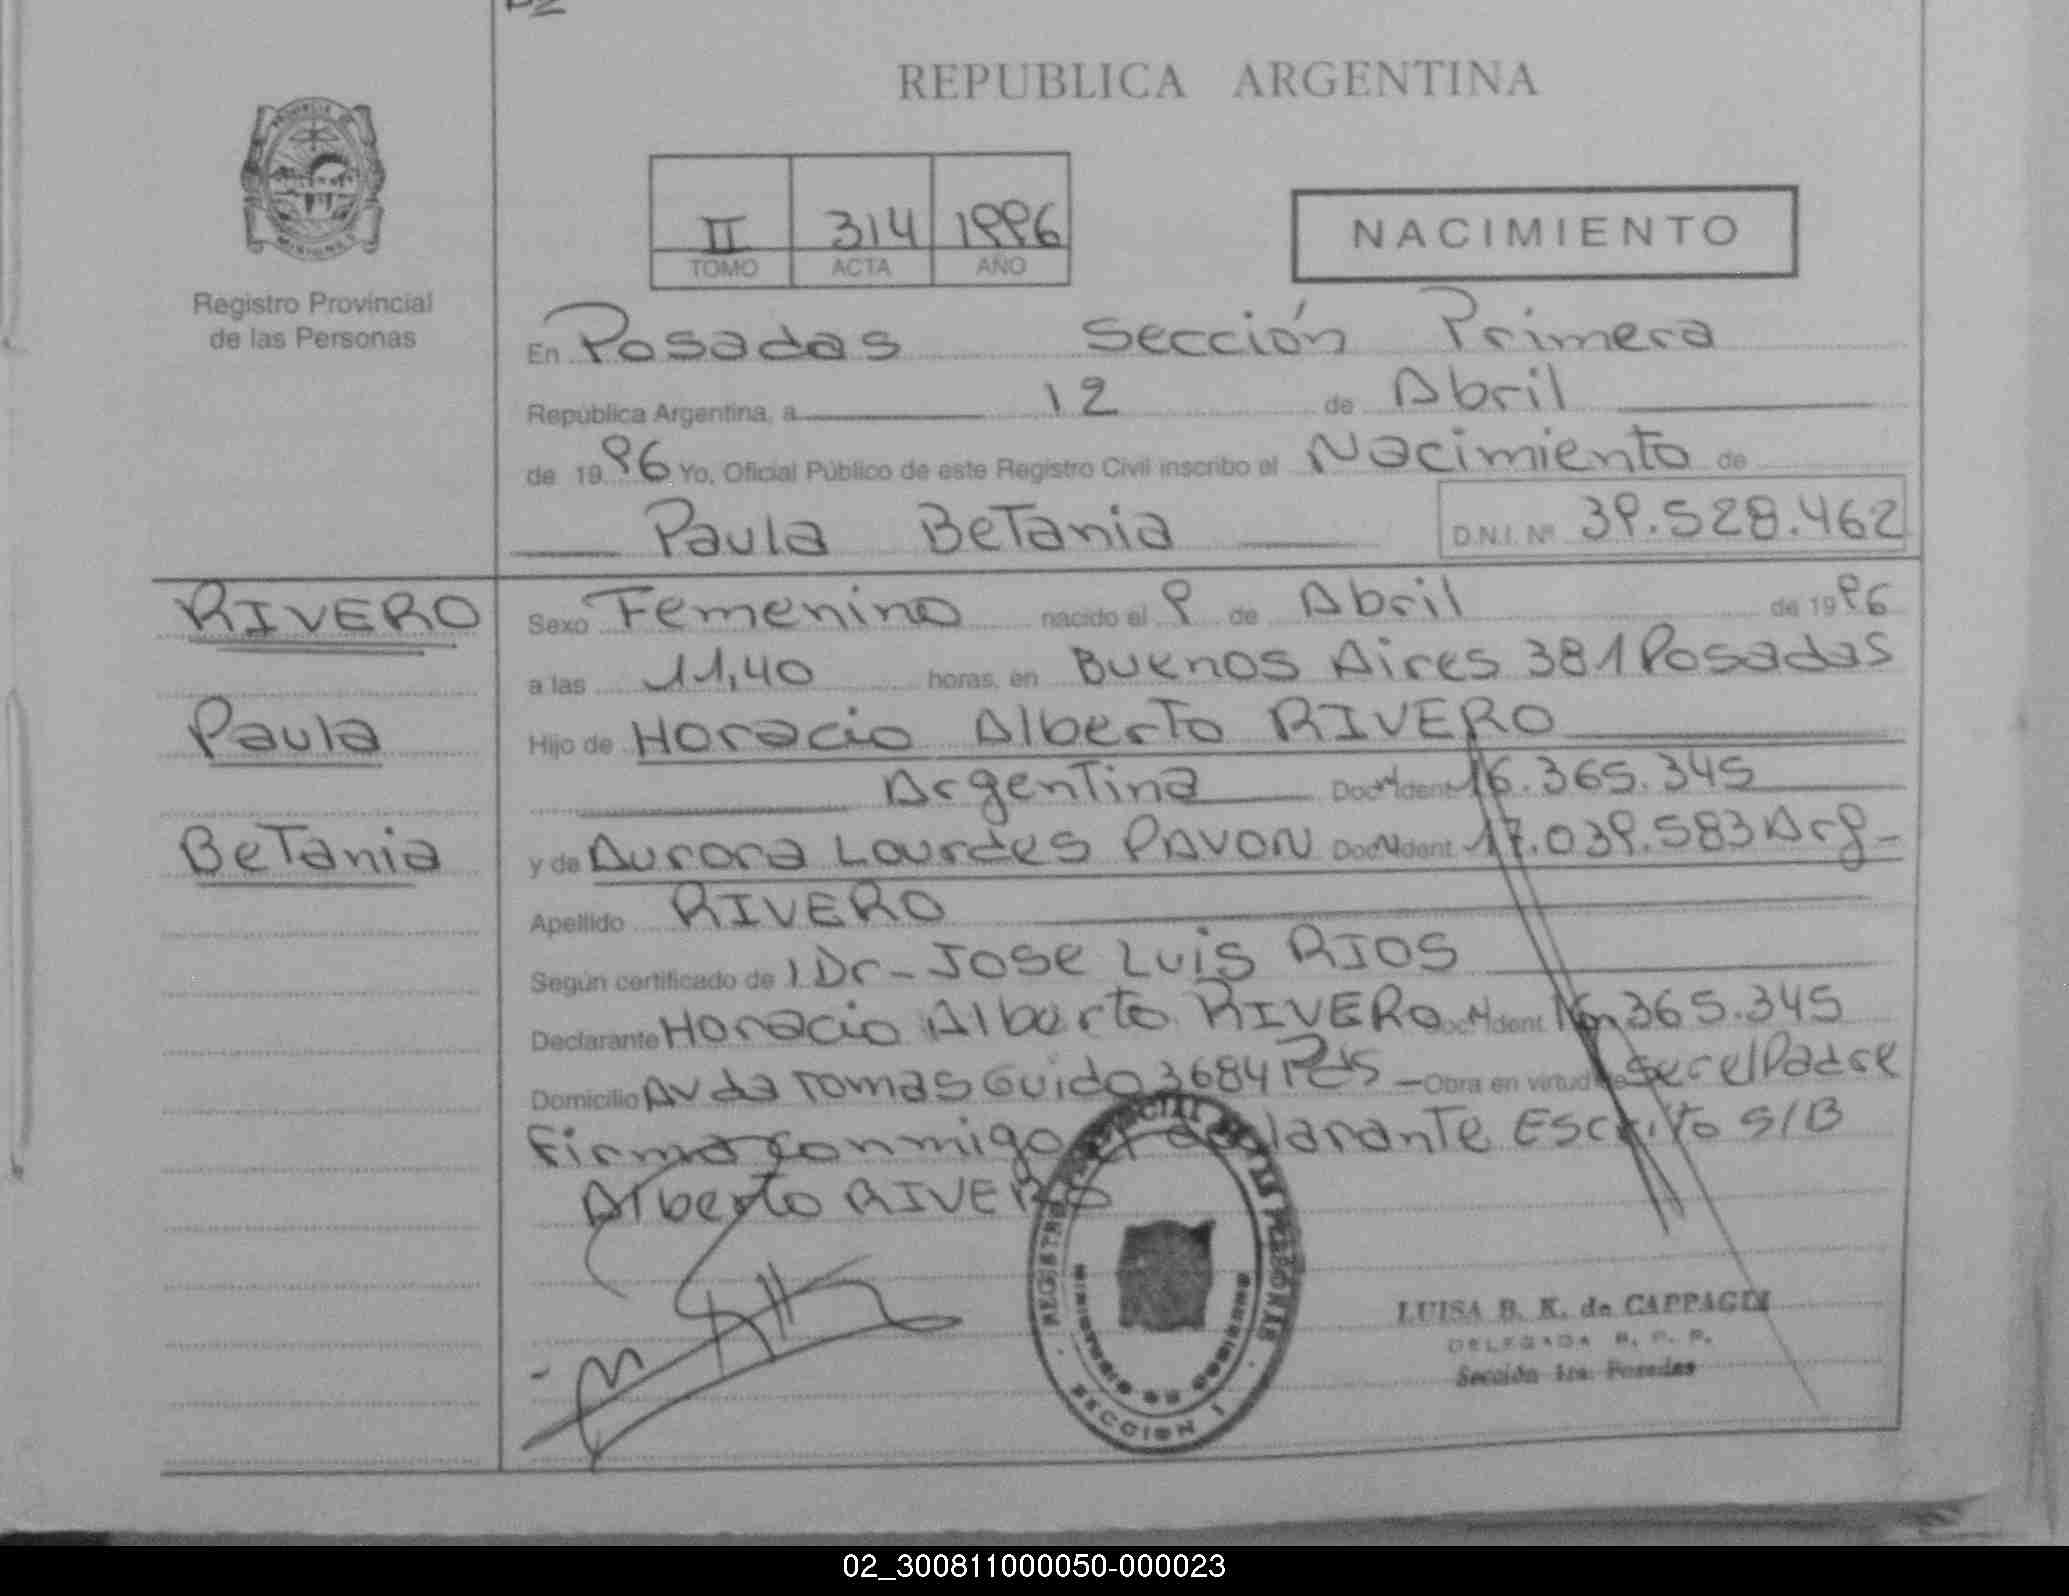 REPUBLICA ARGENTINA
PROVINCIA DE
MISIONES
Registro Provincial
de las Personas
II 314 1996
TOMO ACTA AÑO
NACIMIENTO
En Posadas Sección Primera
República Argentina, a 12 de Abril
de 1996 Yo, Oficial Público de este Registro Civil inscribo el Nacimiento de
Paula Betania D.N.I. Nº 39.528.462
RIVERO
Paula
Betania
Sexo Femenino nacido el 9 de Abril de 1996
a las 11,40 horas, en Buenos Aires 381 Posadas
Hijo de Horacio Alberto RIVERO
Argentina Doc. Ident 16.365.345
y de Aurora Lourdes PAVON Doc. Ident. 17.039.583 Arg-
Apellido RIVERO
Según certificado de Dr- Jose Luis RIOS
Declarante Horacio Alberto RIVERO Doc. Ident. 16.365.345
Domicilio Avda Tomas Guido 3684 Pds - Obra en virtud de ser el Padre
Firma conmigo el declarante Escrito S/B
Alberto RIVERO
REGISTRO PROVINCIAL DE LAS PERSONAS
MINISTERIO DE GOBIERNO
SECCION 1
LUISA B. K. de CAPPAGLI
DELEGADA R. P. P.
Sección 1ra. Posadas
02_300811000050-000023